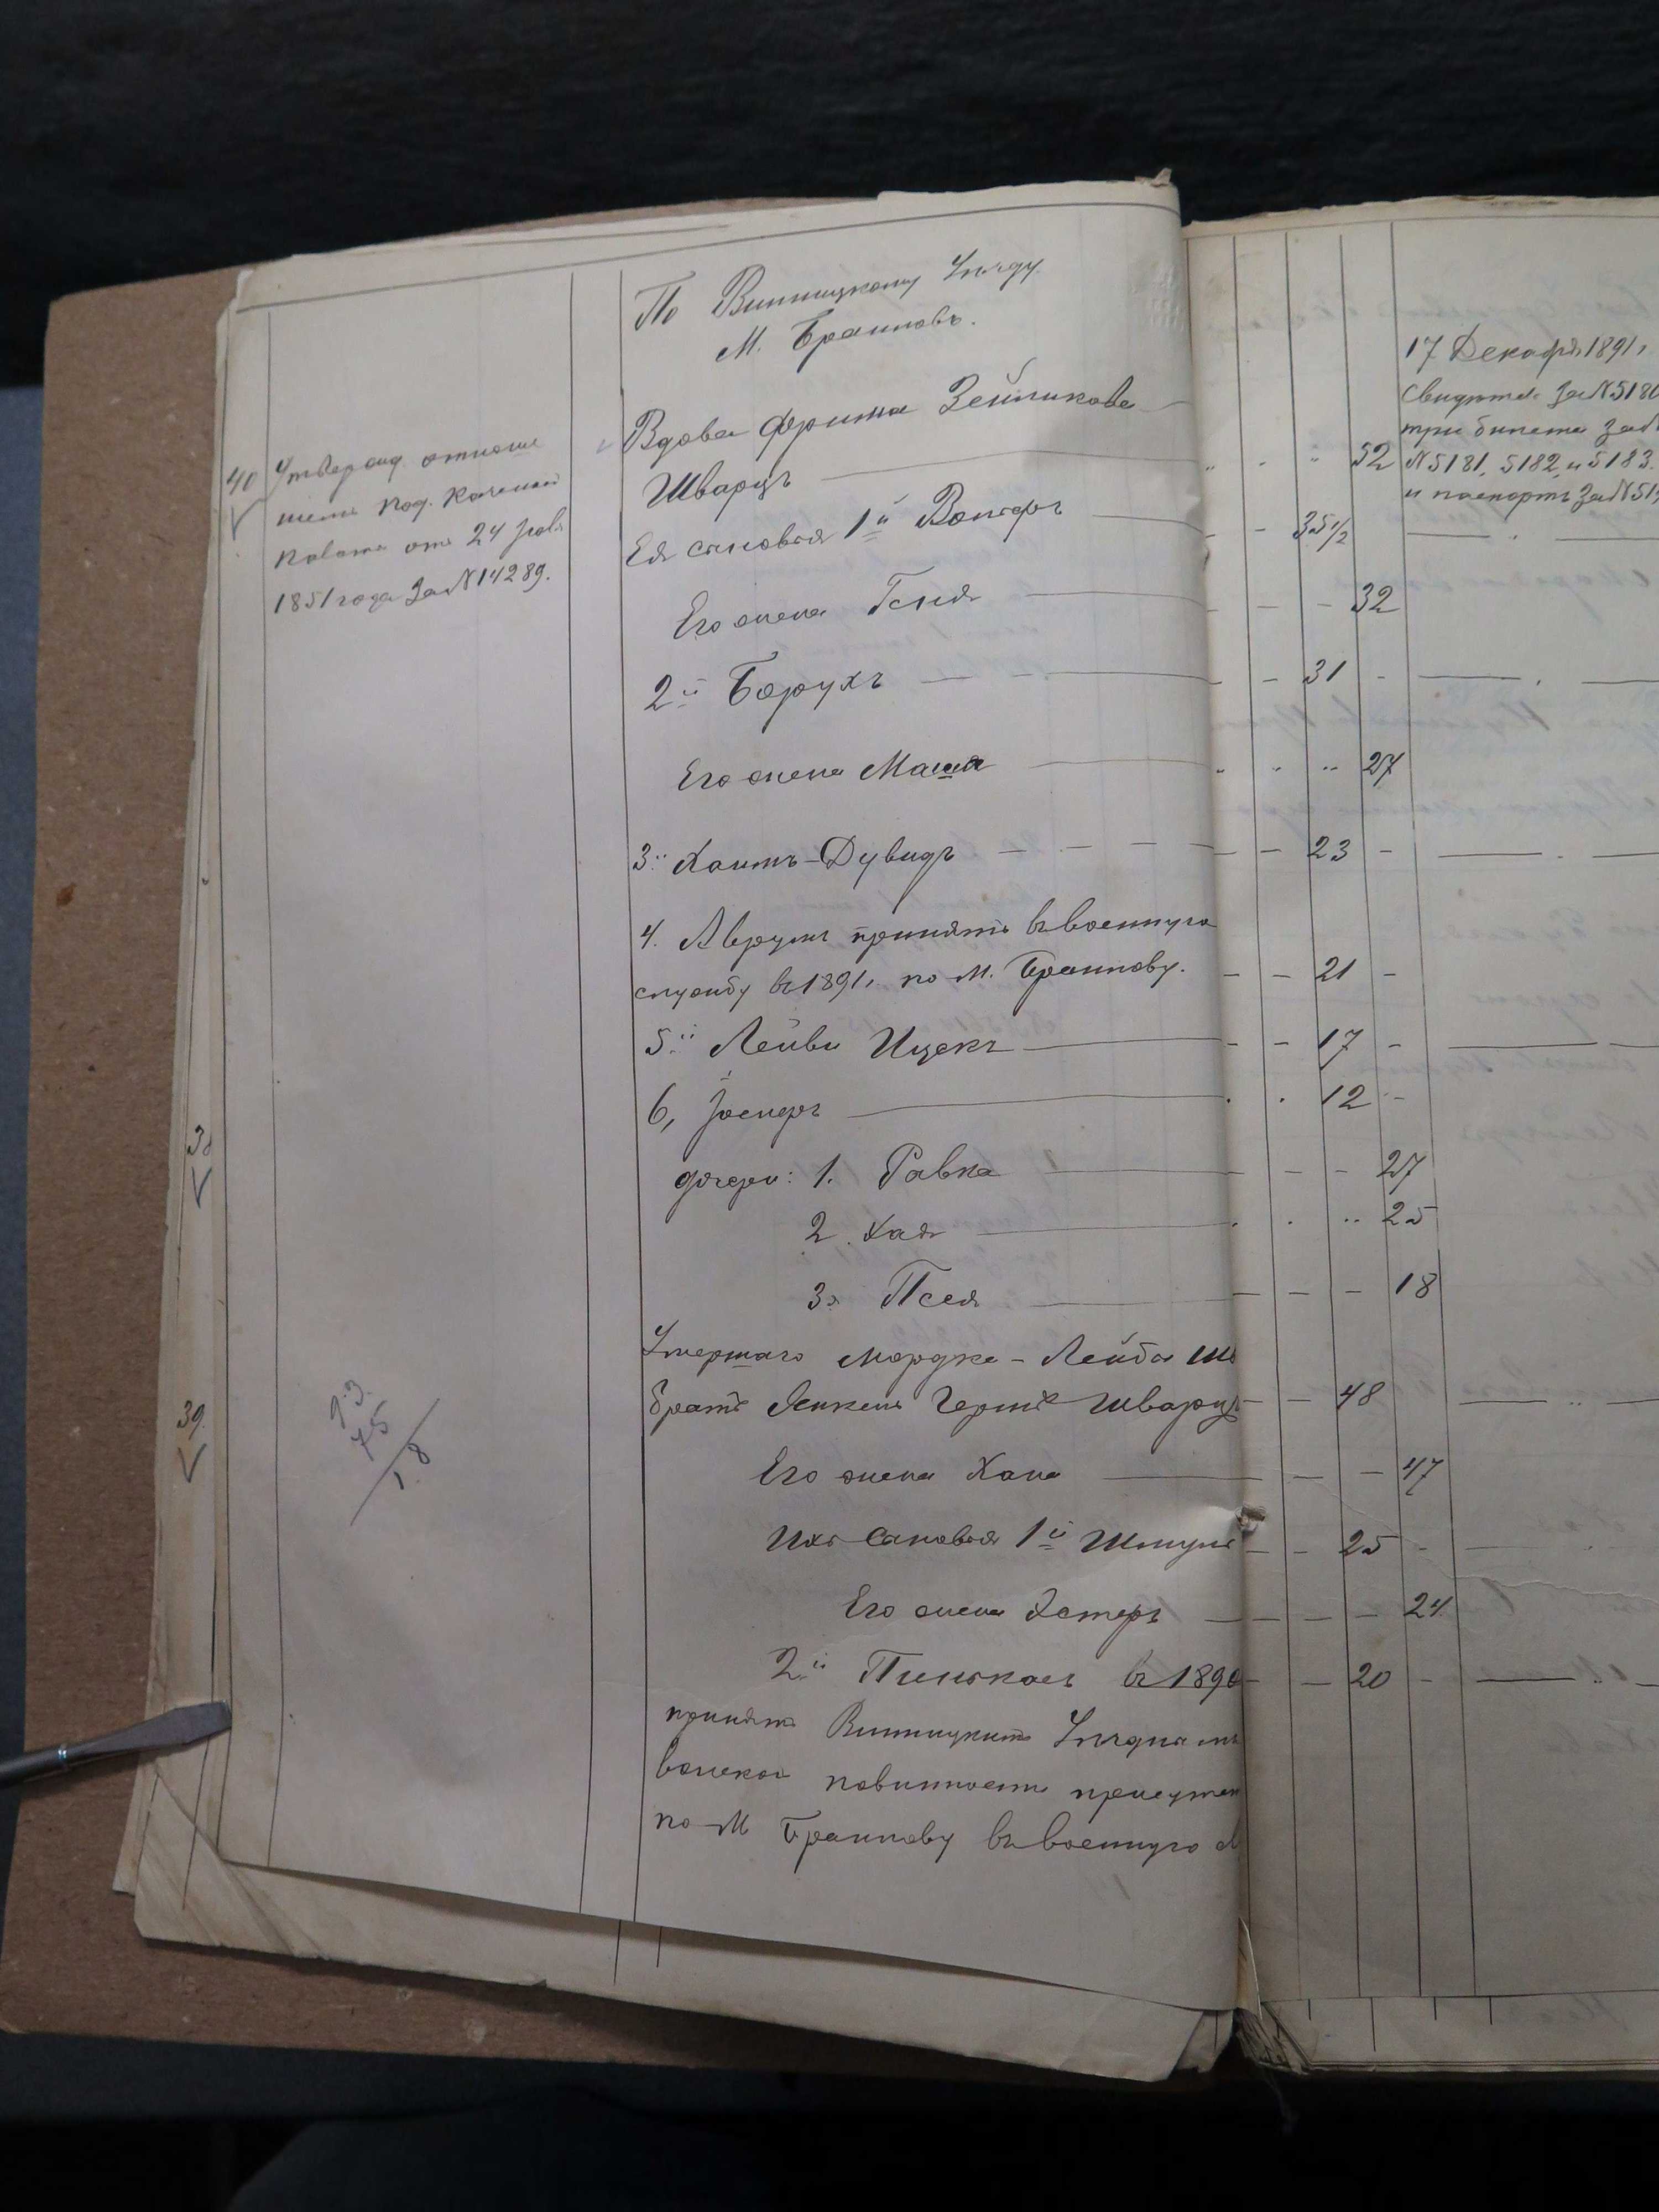 По Винницкому Уѣзду
М. Браиловъ.
40 Утвержд. отноше
ніемъ Под. Казенной
Палаты отъ 24
1851 года За № 14289.
Вдова Фрима Зейликова
Шварцъ — 52
Ея сыновья 1й Вольфъ — 35 1/2
Его жена Геня — 32
2й Борухъ — 31
Его жена Маша — 27
3й Хаимъ-Дувидъ — 23
4. Аврумъ принятъ въ военную
службу въ 1891, по М. Браилову. — 21
5й Лейви Ицекъ — 17
6, Іосифъ — 12
дочери: 1. Равка — 27
2. Хая — 25
3я Песя — 18
Умершаго Мордка-Лейба
братъ Янкель Герш Шварцъ — 48
Его жена Хана — 47
Ихъ Сыновья 1й Шмуль — 25
Его жена Эстеръ — 24
2й Пинькасъ въ 1890 — 20
принятъ Винницкимъ Уѣзднымъ
воинской повинности присутств
по М Браилову въ военную
17 Декабря 1891,
Свидѣтел. За № 5180
три билета за
№ 5181, 5182 и 5183.
и паспортъ За № 51
38
39
93
75
18